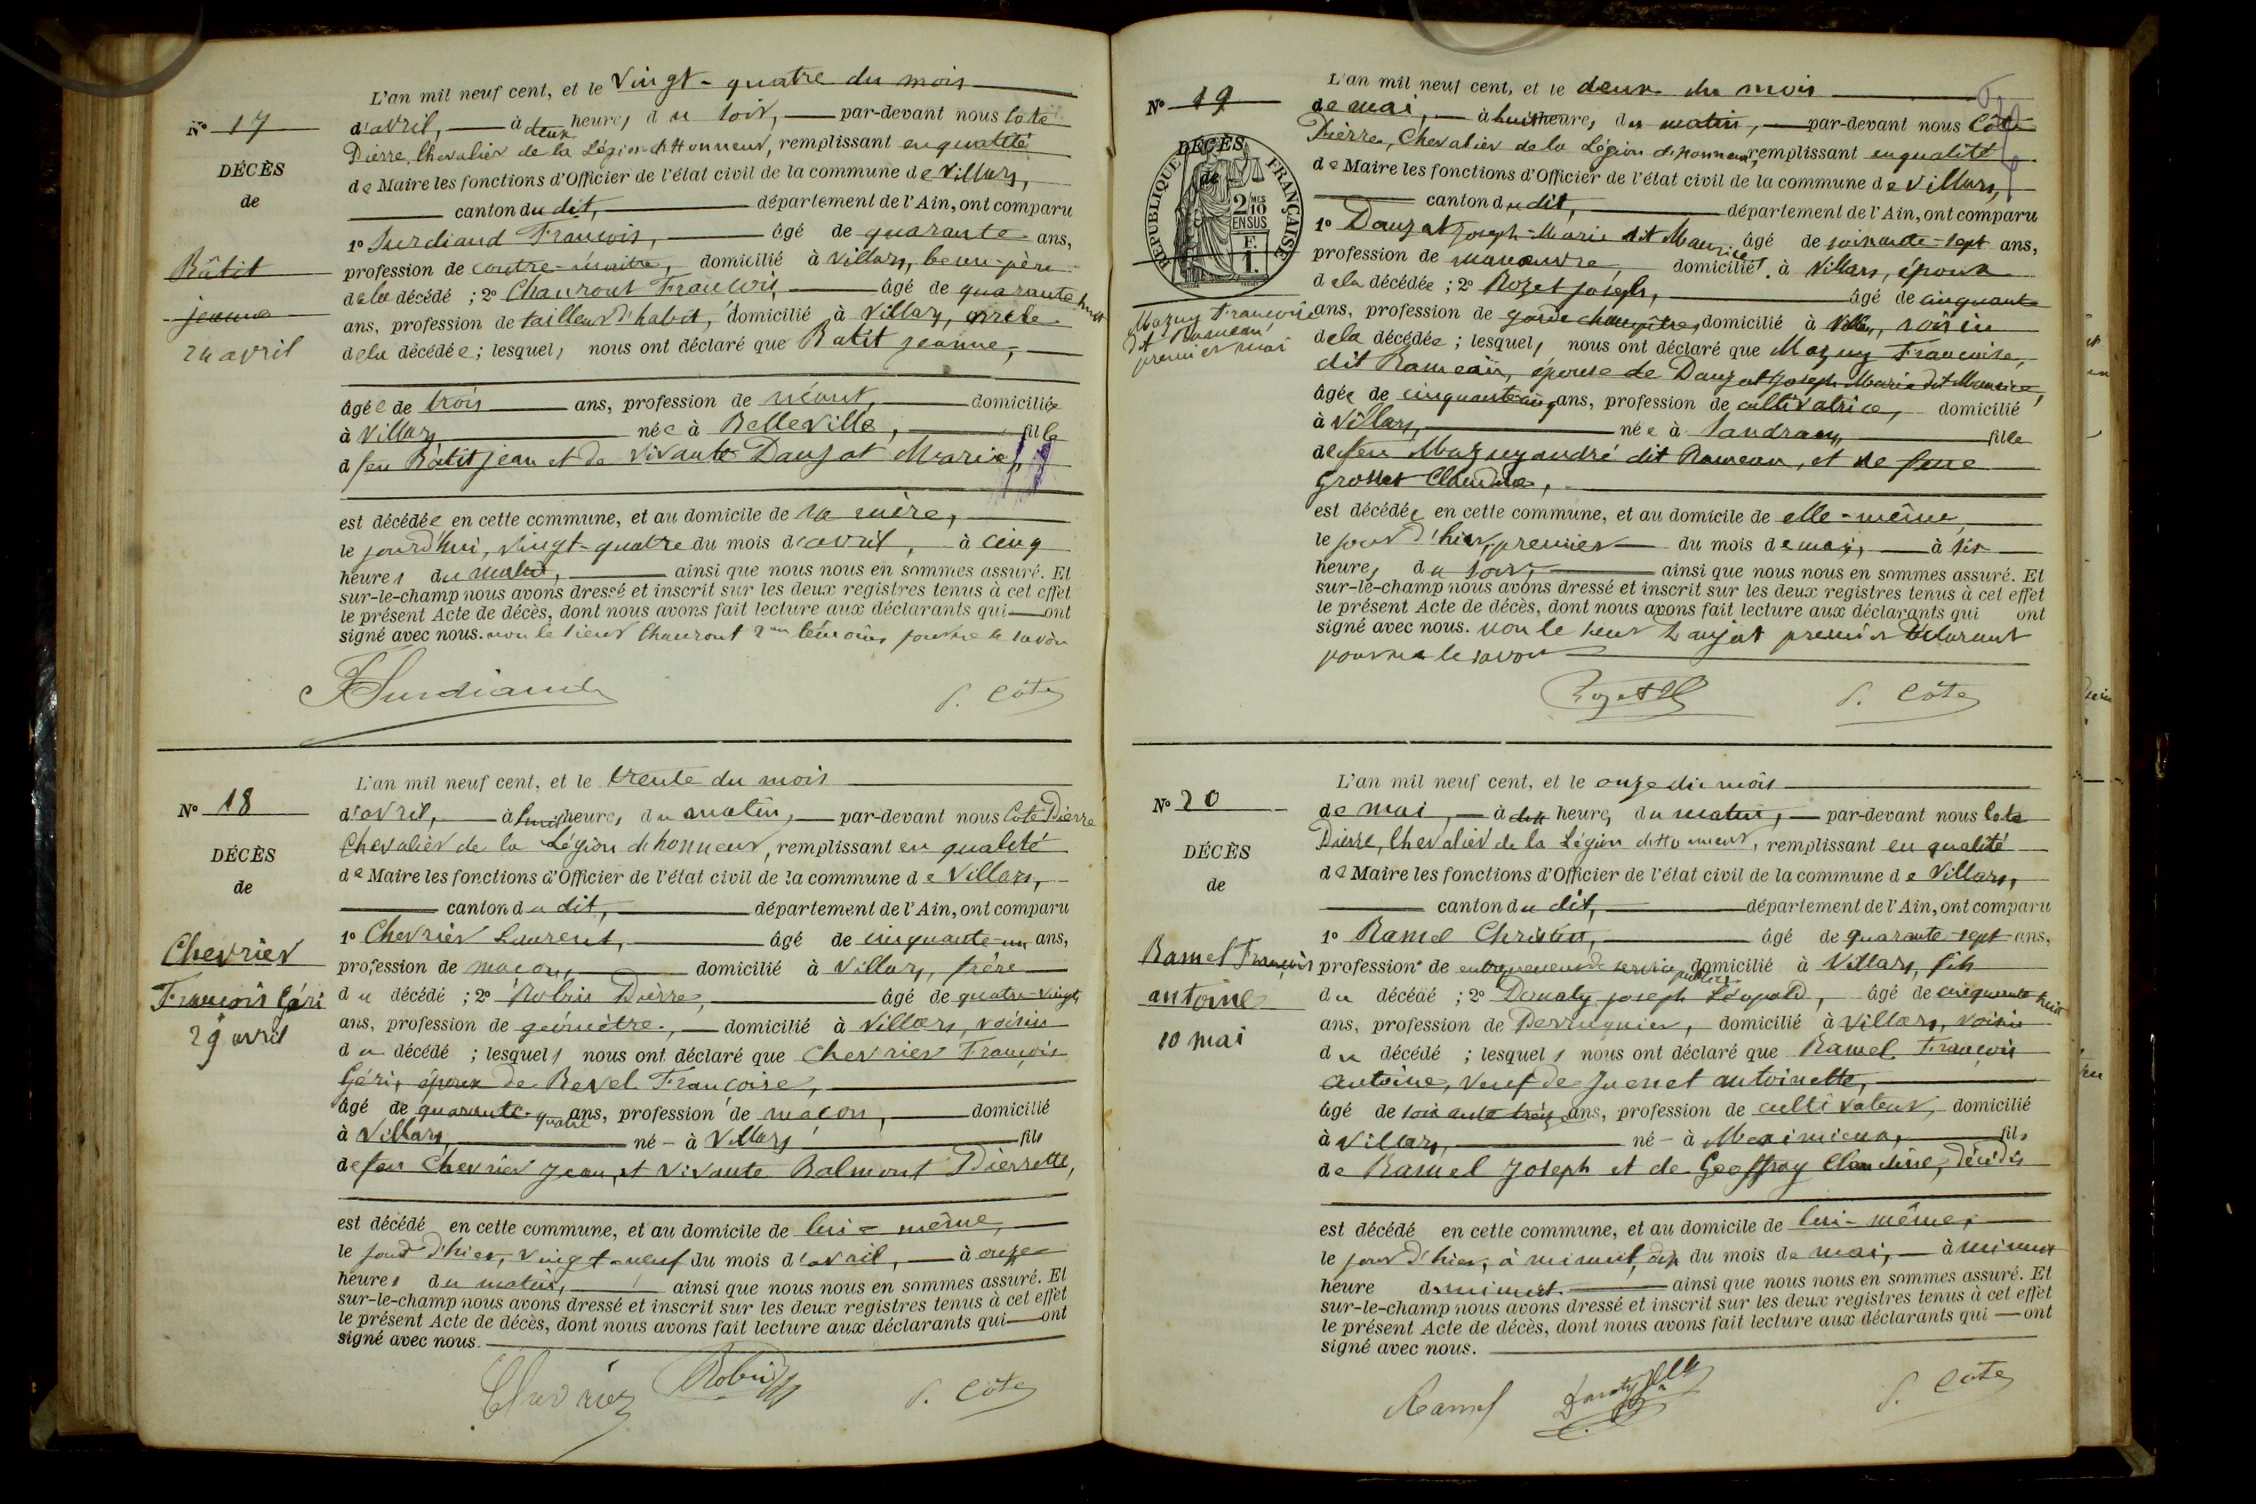 N° 17
DÉCÈS
de
Bâtit
jeanne
24 avril
L'an mil neuf cent, et le vingt-quatre du mois
d'avril, à deux heures du soir, par-devant nous Cote
Pierre, Chevalier de la Légion d'Honneur, remplissant en qualité
de Maire les fonctions d'Officier de l'état civil de la commune de Villars,
canton du dit, département de l'Ain, ont comparu
1° Surdiaud François, âgé de quarante ans,
profession de contre-maître, domicilié à Villars, beau-père
de la décédé ; 2° Chauront François, âgé de quarante huit
ans, profession de tailleur d'habit, domicilié à Villars, oncle
de la décédée ; lesquels nous ont déclaré que Batit jeanne,
âgée de trois ans, profession de néant, domiciliée
à Villars née à Belleville, fille
d feu Bâtit jean et de vivante Dauzat Marie,
est décédée en cette commune, et au domicile de sa mère,
le jourd'hui, vingt-quatre du mois d'avril, à cinq
heures du matin, ainsi que nous nous en sommes assuré. Et
sur-le-champ nous avons dressé et inscrit sur les deux registres tenus à cet effet
le présent Acte de décès, dont nous avons fait lecture aux déclarants qui ont
signé avec nous. non le sieur Chauront témoins pour ne le savoir
FSurdiaud
P. Côte
N° 18
DÉCÈS
de
Chevrier
François Géri
29 avril
L'an mil neuf cent, et le trente du mois
d'avril, à huit heures du matin, par-devant nous Cote Pierre
Chevalier de la Légion d'honneur, remplissant en qualité
de Maire les fonctions d'Officier de l'état civil de la commune de Villars,
canton du dit, département de l'Ain, ont comparu
1° Chevrier Laurent, âgé de cinquante-un ans,
profession de maçon, domicilié à Villars, frère
du décédé ; 2° Robin Pierre, âgé de quatre-vingt
ans, profession de géomètre, domicilié à Villars, voisin
du décédé ; lesquels nous ont déclaré que Chevrier François
Géri, époux de Revel Françoise,
âgé de quarante-quatre ans, profession de maçon, domicilié
à Villars, né à Villars fils
de feu Chevrier Jean, et vivante Balmont Pierrette,
est décédé en cette commune, et au domicile de lui-même,
le jour d'hier, vingt-neuf du mois d'avril, à onze
heures du matin, ainsi que nous nous en sommes assuré. Et
sur-le-champ nous avons dressé et inscrit sur les deux registres tenus à cet effet
le présent Acte de décès, dont nous avons fait lecture aux déclarants qui ont
signé avec nous.
Chevrier
Robin
P. Côte
N° 19
DÉCÈS
de
RÉPUBLIQUE FRANÇAISE
2 MES
10
EN SUS
F.
1.
Mazuy Françoise
dit Rameau
premier mai
L'an mil neuf cent, et le deux du mois
de mai, à huit heures du matin, par-devant nous Côte
Pierre, Chevalier de la Légion d'honneur, remplissant en qualité
de Maire les fonctions d'Officier de l'état civil de la commune de Villars,
canton du dit, département de l'Ain, ont comparu
1° Dauzat Joseph-Marie dit Maurice, âgé de soixante-sept ans,
profession de manœuvre, domicilié à Villars, époux
de la décédée ; 2° Rozet joseph, âgé de cinquante
ans, profession de garde champêtre, domicilié à Villars, voisin
de la décédée ; lesquels nous ont déclaré que Mazuy Françoise,
dit Rameau, épouse de Dauzat Joseph Marie dit Maurice,
âgée de cinquante cinq ans, profession de cultivatrice, domicilié
à Villars, née à Sandrans, fille
de feu Mazuy andré dit Rameau, et de feue
Grosset Claudine,
est décédée en cette commune, et au domicile de elle-même,
le jour d'hier, premier du mois de mai, à six
heures du soir, ainsi que nous nous en sommes assuré. Et
sur-le-champ nous avons dressé et inscrit sur les deux registres tenus à cet effet
le présent Acte de décès, dont nous avons fait lecture aux déclarants qui ont
signé avec nous. non le sieur Dauzat premier déclarant
pour ne le savoir
Rozet
P. Côte
N° 20
DÉCÈS
de
Ramel François
antoine
10 mai
L'an mil neuf cent, et le onze du mois
de mai, à dix heures du matin, par-devant nous Cote
Pierre, Chevalier de la Légion d'Honneur, remplissant en qualité
de Maire les fonctions d'Officier de l'état civil de la commune de Villars,
canton du dit, département de l'Ain, ont comparu
1° Ramel Christin, âgé de quarante-sept ans,
profession de entrepreneur de service public domicilié à Villars, fils
du décédé ; 2° Donaty joseph Léopold, âgé de cinquante huit
ans, profession de Perruquier, domicilié à Villars, voisin
du décédé ; lesquels nous ont déclaré que Ramel François
antoine, veuf de Juenet antoinette,
âgé de soixante treize ans, profession de cultivateur, domicilié
à Villars, né à Meximieux, fils
de Ramel Joseph et de Geoffray Claudine, décédés
est décédé en cette commune, et au domicile de lui-même,
le jour d'hier, à minuit, dix du mois de mai, à minuit
heure de minuit. ainsi que nous nous en sommes assuré. Et
sur-le-champ nous avons dressé et inscrit sur les deux registres tenus à cet effet
le présent Acte de décès, dont nous avons fait lecture aux déclarants qui ont
signé avec nous.
Ramel
Donaty
P. Côte